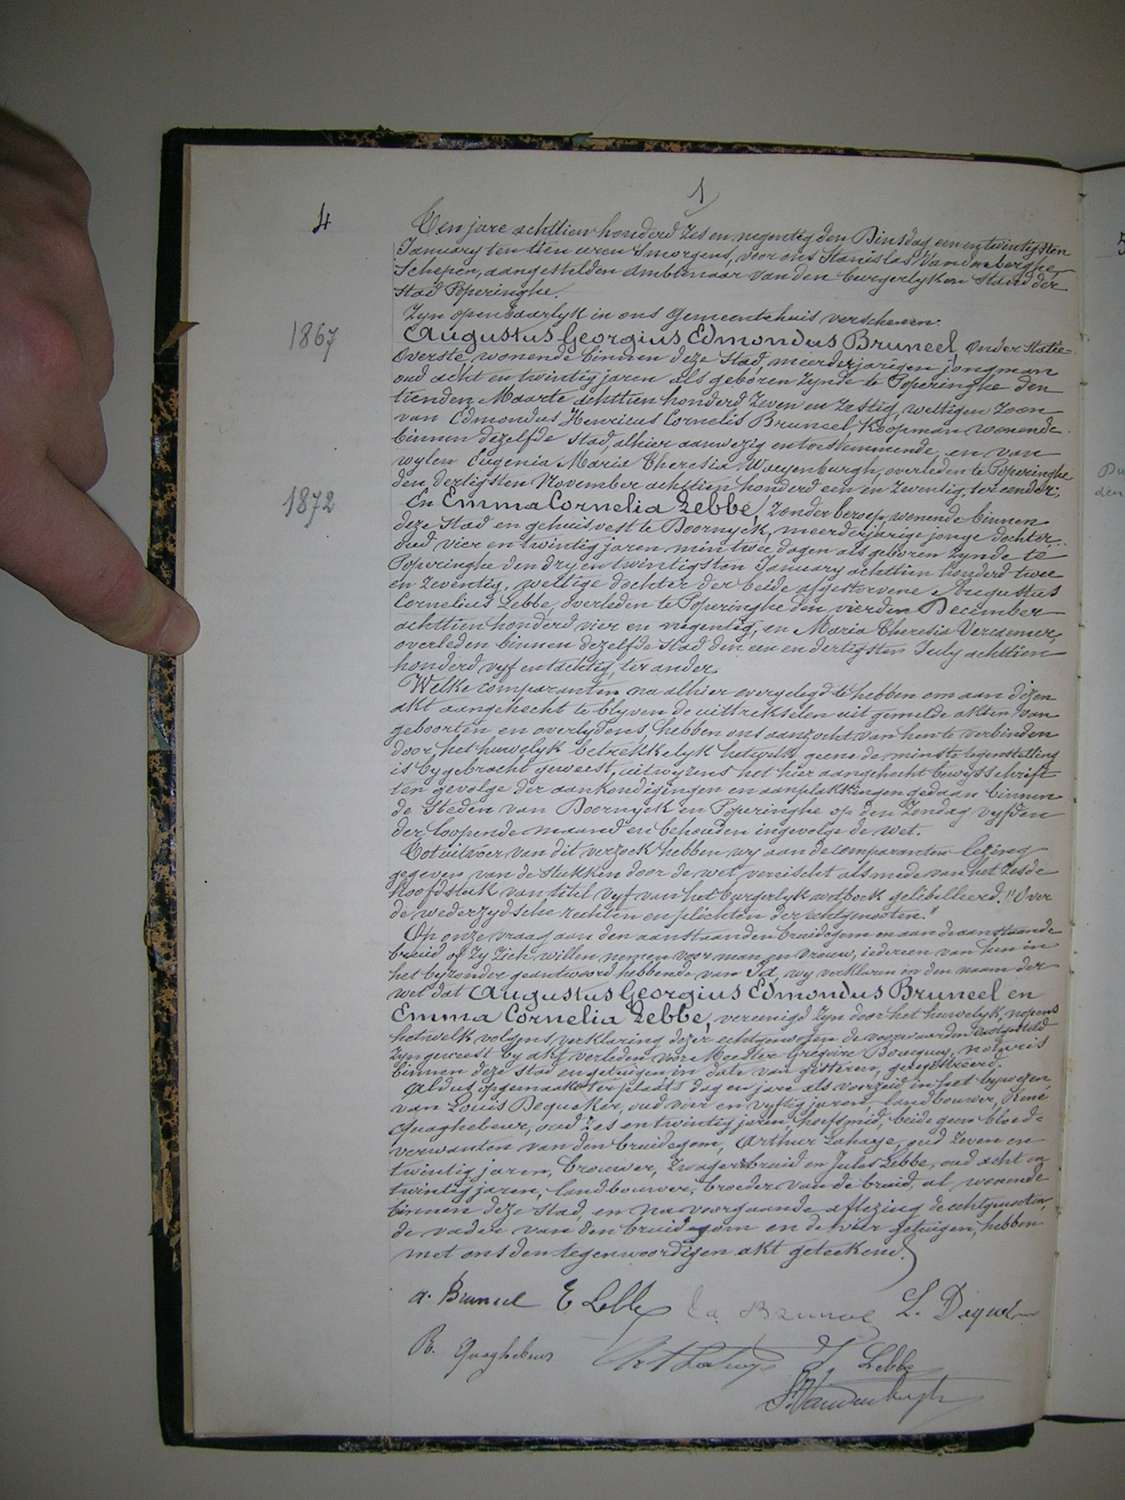 1
4
Ten jare achttien honderd zes en negentig den Dinsdag een en twintigsten
January ten tien uren smorgens, voor ons Stanislas Vandenberghe
Schepen, aangestelden ambtenaar van den burgerlyken Stand der
Stad Poperinghe.
Zyn openbaarlyk in ons gemeentehuis verschenen:
1867
Augustus Georgius Edmondus Bruneel, onder statie
overste, wonende binnen deze stad, meerderjarigen jongman
oud acht en twintig jaren als geboren zynde te Poperinghe den
tienden Maarte achttien honderd zeven en zestig, wettigen zoon
van Edmondus Henricus Cornelis Bruneel Koopman wonende
binnen dezelfde stad, alhier aanwezig en toestemmende, en van
wylen Eugenia Maria Theresia Wueyenburgh, overleden te Poperinghe
den dertigsten November achttien honderd een en zeventig, ter eender;
1872
En Emma Cornelia Lebbe, zonder beroep, wonende binnen
deze stad en gehuisvest te Doornyck, meerderjarige jonge dochter
oud vier en twintig jaren min twee dagen als geboren zynde te
Poperinghe den dry en twintigsten January achttien honderd twee
en zeventig, wettige dochter der beide afgestorvene Augustus
Cornelius Lebbe, overleden te Poperinghe den vierden December
achttien honderd vier en negentig, en Maria Theresia Vercamer,
overleden binnen dezelfde stad den een en dertigsten July achttien
honderd vyf en tachtig, ter ander
Welke comparanten na alhier overgelegd te hebben om aan dezen
akt aangehecht te blyven de uittrekselen uit gemelde akten van
geboorten en overlydens, hebben ons aanzocht van hen te verbinden
door het huwelyk betrekkelyk hetwelk geene de minste tegenstelling
is bygebracht geweest, uitwyzens het hier aangehecht bewysschrift
ten gevolge der aankondigingen en aanplakkingen gedaan binnen
de steden van Doornyck en Poperinghe op den Zondag vyfden
der loopende maand en behouden ingevolge de wet.
Tot uitvoer van dit verzoek hebben wy aan de comparanten lezing
gegeven van de stukken door de wet vereischt als mede van het zesde
hoofdstuk van titel vyf van het burgerlyk wetboek gelibelleerd. "Over
de wederzydsche rechten en plichten der echtgenooten."
Op onze vraag aan den aanstaanden bruidegom en aan de aanstaande
bruid of zy zich willen nemen voor man en vrouw, iedereen van hen in
het byzonder geantwoord hebbende van Ja, wy verklaren in den naam der
wet dat Augustus Georgius Edmondus Bruneel en
Emma Cornelia Lebbe, vereenigd zyn door het huwelyk, nopens
hetwelk volgens verklaring dezer echtgenooten de voorwaarden vastgesteld
zyn geweest by akt verleden voor Meester Grégoire Boucquey, notaris
binnen deze stad en getuigen in date van gisteren, geregistreerd.
Aldus opgemaakt ter plaats dag en jare als voorzeid, in het bywezen
van Louis Dequeker, oud vier en vyftig jaren, landbouwer, René
Quaghebeur, oud zes en twintig jaren, hoefsmid, beide geen bloed-
verwanten van den bruidegom, Arthur Lahaye, oud zeven en
twintig jaren, brouwer, zwager bruid en Jules Lebbe, oud acht en
twintig jaren, landbouwer, broeder van de bruid, al wonende
binnen deze stad, en na voorgaande aflezing de echtgenooten,
de vader van den bruidegom en de vier getuigen, hebben
met ons den tegenwoordigen akt geteekend.
A. Bruneel E Lebbe Ed Bruneel L. Dequeker
R. Quaghebeur Art Lahaye J. Lebbe
S. Vandenberghe
5
den